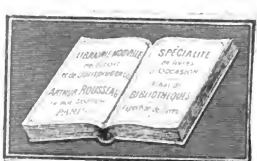 LIBRAIRIE NOUVELLE
de Droit
et de Jurisprudence
ARTHUR ROUSSEAU
PARIS
SPÉCIALITÉ
de Livres
D'OCCASION
BIBLIOTHÈQUES